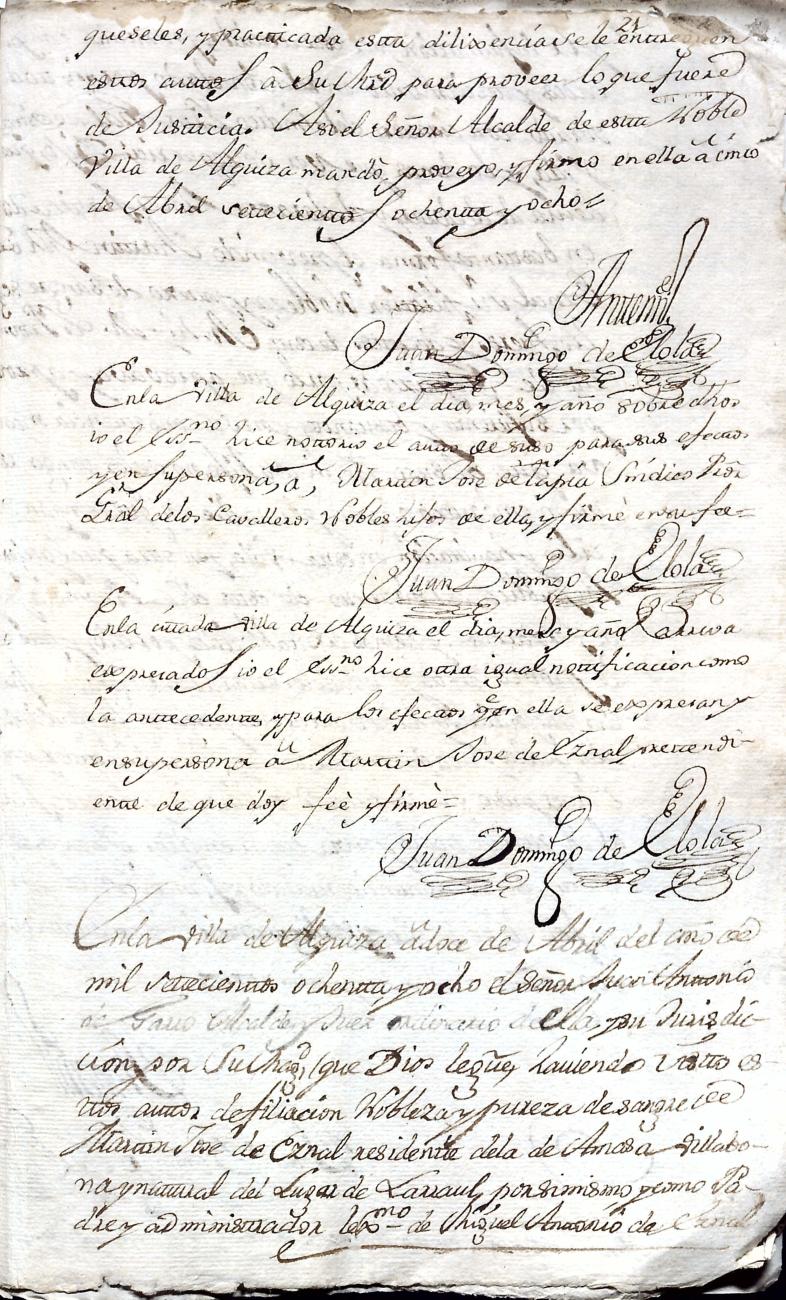 21
queseles, y practicada esta dilixencia se le entreguen
estos autos à Su Mrd para proveer lo que fuere
de Justicia. Asi el Señor Alcalde de esta Noble
Villa de Alquiza mandò, proveyo, y firmo en ella à cinco
de Abril setecientos ochenta y ocho=
Antemi
Juan Domingo de Elola
Enla Villa de Alquiza el dia, mes, y año sobre dhos
io el Ess.no hice notorio el auto de suso para sus efectos
y en su persona, à, Martin Jose de Tapia Sindico Pror
Gral delos Cavalleros Nobles hijos de ella, y firmè en su fee=
Juan Domingo de Elola
Enla citada villa de Alquiza el dia, mes, y año arriva
expresados io el Ess.no hice otra igual nottificacion como
la antecedente, y para los efectos q.e en ella se expresan y
en su persona à Martin Jose de Eznal pretendi-
ente de que doy feè y firmè=
Juan Domingo de Elola
Enla Villa de Alquiza à doce de Abril del año de
mil setecientos ochenta y ocho el Señor Juan Antonio
de Alcalde y Juez ordinario de ella, y su Jurisdic-
ción por Su Magd, (que Dios gue, haviendo visto es-
tos autos de filiacion Nobleza y pureza de sangre de
Martin Jose de Eznal residente dela de Amasa Villabo-
na y natural del Lugar de Larraul, por si mismo y como Pa-
dre y administrador lexmo de Miguel Antonio de Eznal